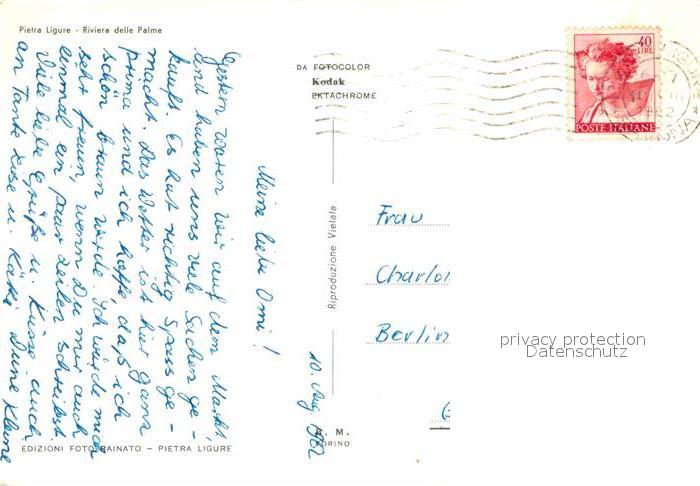 Pietra Ligure - Riviera delle Palme
DA FOTOCOLOR
Kodak
EKTACHROME
40
LIRE
POSTE ITALIANE
10. Aug 1962
Meine liebe Omi!
Gestern waren wir auf dem Markt,
und haben uns viele Sachen ge-
kauft. Es hat richtig Spass ge-
macht. Das Wetter ist hier ganz
prima und ich hoffe, daß ich
schön braun werde. Ich würde mich
sehr freuen, wenn Du mir auch
einmal ein paar Zeilen schreibst.
Viele liebe Grüße u. Küsse auch
an Tante Liese u. Käthe Deine Kleine
Riproduzione Vietata
Frau
Charlot
Berlin
privacy protection
Datenschutz
R. M.
TORINO
EDIZIONI FOTO RAINATO - PIETRA LIGURE